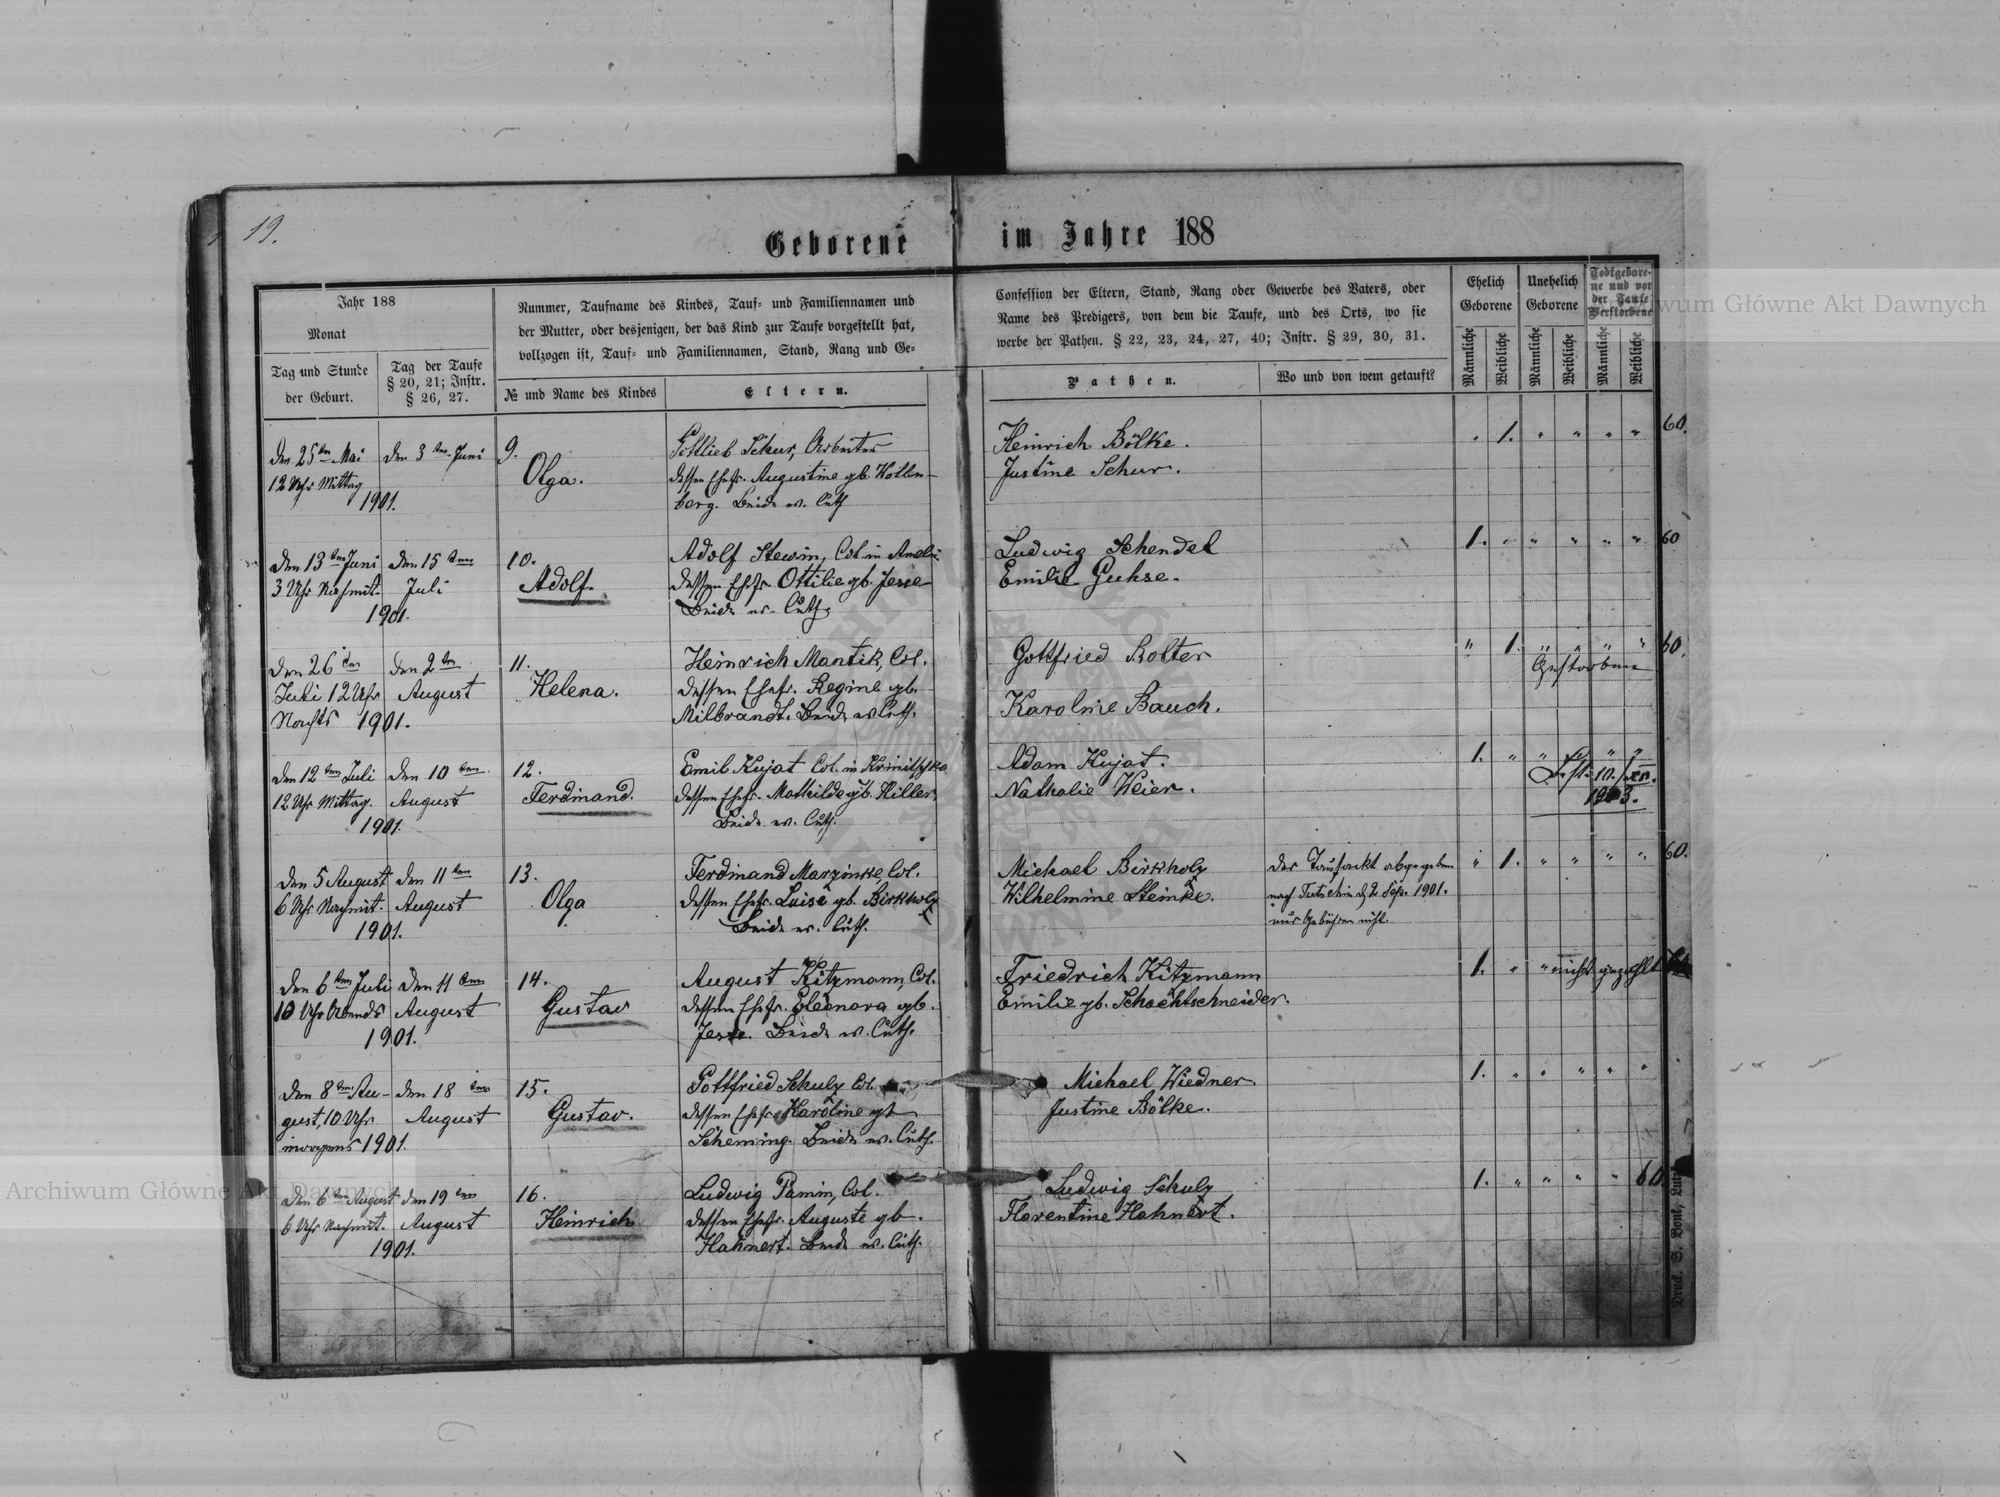 19.
Geborene im Jahre 188
Jahr 188
Monat
Tag und Stunde
der Geburt.
Tag der Taufe
§ 20, 21; Instr.
§ 26, 27.
Nummer, Taufname des Kindes, Tauf- und Familiennamen und
der Mutter, oder desjenigen, der das Kind zur Taufe vorgestellt hat,
vollzogen ist, Tauf- und Familiennamen, Stand, Rang und Ge-
№ und Name des Kindes
Eltern.
Confession der Eltern, Stand, Rang oder Gewerbe des Vaters, oder
Name des Predigers, von dem die Taufe, und des Orts, wo sie
werbe der Pathen. § 22, 23, 24, 27, 40; Instr. § 29, 30, 31.
Pathen.
Wo und von wem getauft?
Ehelich
Geborene
Unehelich
Geborene
Todtgebore-
ne und vor
der Taufe
Verstorbene
Männliche
Weibliche
Männliche
Weibliche
Männliche
Weibliche
Archiwum Główne Akt Dawnych
den 25ten Mai
12 Uhr Mittag
1901.
den 3ten Juni
9.
Olga.
Gottlieb Schur, Arbeiter
dessen Ehefr. Augustine gb. Wollen-
berg. Beide ev. Luth
Heinrich Bölke.
Justine Schur.
" 1. " " " " 60.
den 13ten Juni
3 Uhr Nachmit.
1901.
den 15ten
Juli
10.
Adolf.
Adolf Stewin, Col. in
dessen Ehefr. Ottilie gb. Jesse
Beide ev. Luth.
Ludwig Schendel
Emilie Guhse.
1. " " " " " 60
den 26ten
Juli 12 Uhr
Nachts 1901.
den 2ten
August
11.
Helena.
Heinrich Mantik, Col.
dessen Ehefr. Regine gb.
Milbrandt. Beide ev. Luth.
Gottfried Rolter
Karoline Bauch.
" 1. " " " " 60.
Gestorben
den 12ten Juli
12 Uhr Mittag.
1901.
den 10ten
August
12.
Ferdinand.
Emil Kujat Col. in
dessen Ehefr. Mathilde gb. Hiller
Beide ev. Luth.
Adam Kujat.
Nathalie Weier.
1. " " " "
10./XII.
1903.
den 5 August
6 Uhr Nachmit.
1901.
den 11ten
August
13.
Olga
Ferdinand Marzinke, Col.
dessen Ehefr. Luise gb. Birkholz
Beide ev. Luth.
Michael Birkholz
Wilhelmine Steinke.
der Taufackt abgegeben
nach Tutschin d. 2 Sep. 1901.
nur Gebühren nicht.
" 1. " " " " 60.
den 6ten Juli
10 Uhr Abends
1901.
den 11ten
August
14.
Gustav
August Kitzmann, Col.
dessen Ehefr. Eleonora gb.
Jesse. Beide ev. Luth.
Friedrich Kitzmann
Emilie gb. Schachtschneider.
1. " " nicht gezahlt
den 8ten Au-
gust, 10 Uhr
morgens 1901.
den 18ten
August
15.
Gustav.
Gottfried Schulz Col.
dessen Ehefr. Karoline gb
Scheming. Beide ev. Luth.
Michael Wiedner.
Justine Bölke.
1. " " " " "
den 6ten August
6 Uhr Nachmit.
1901.
den 19ten
August
16.
Heinrich
Ludwig Pamin, Col.
dessen Ehefr. Auguste gb.
Hahnert. Beide ev. Luth.
Ludwig Schulz
Florentine Hahnert.
1. " " " " 60.
Archiwum Główne Akt Dawnych